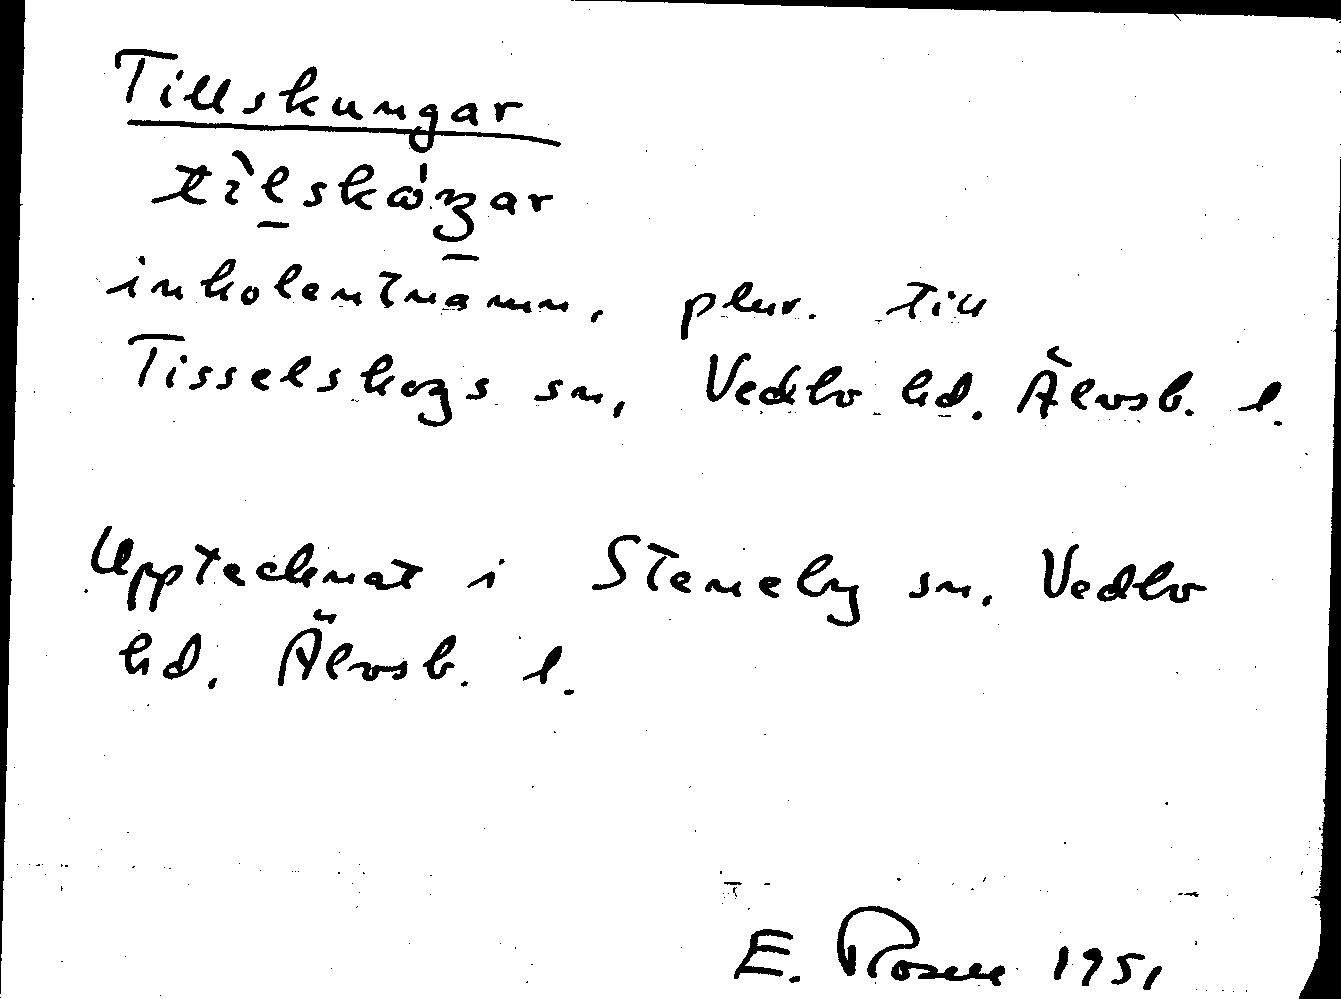 Tillskungar
inbolentnamn, plur. till
Tisselskogs sn, Vedbo hd. Älvsb. l.
Upptecknat i Steneby sn. Vedbo
hd. Älvsb. l.
E. Rosen 1951